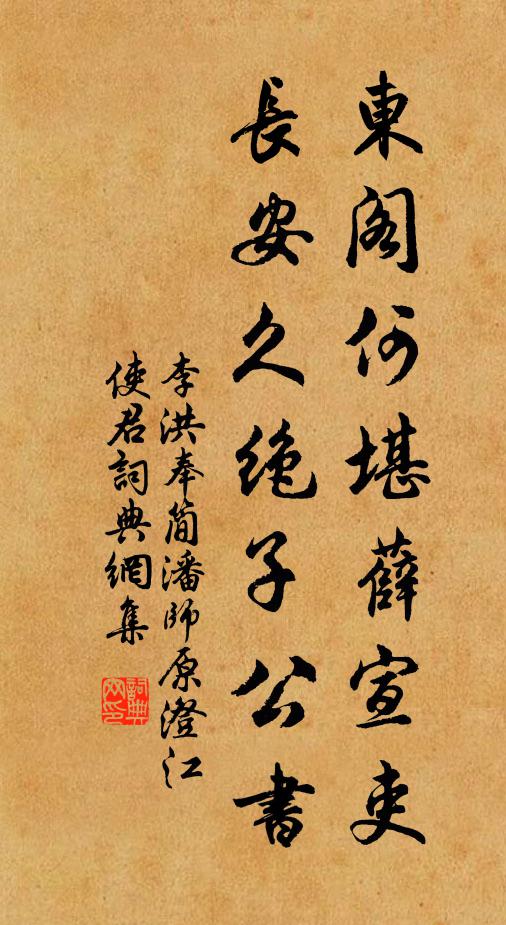 東閣何堪薛宣吏
長安久絕子公書
李洪奉簡潘師原澄江
使君詞典網集
詞典
网印